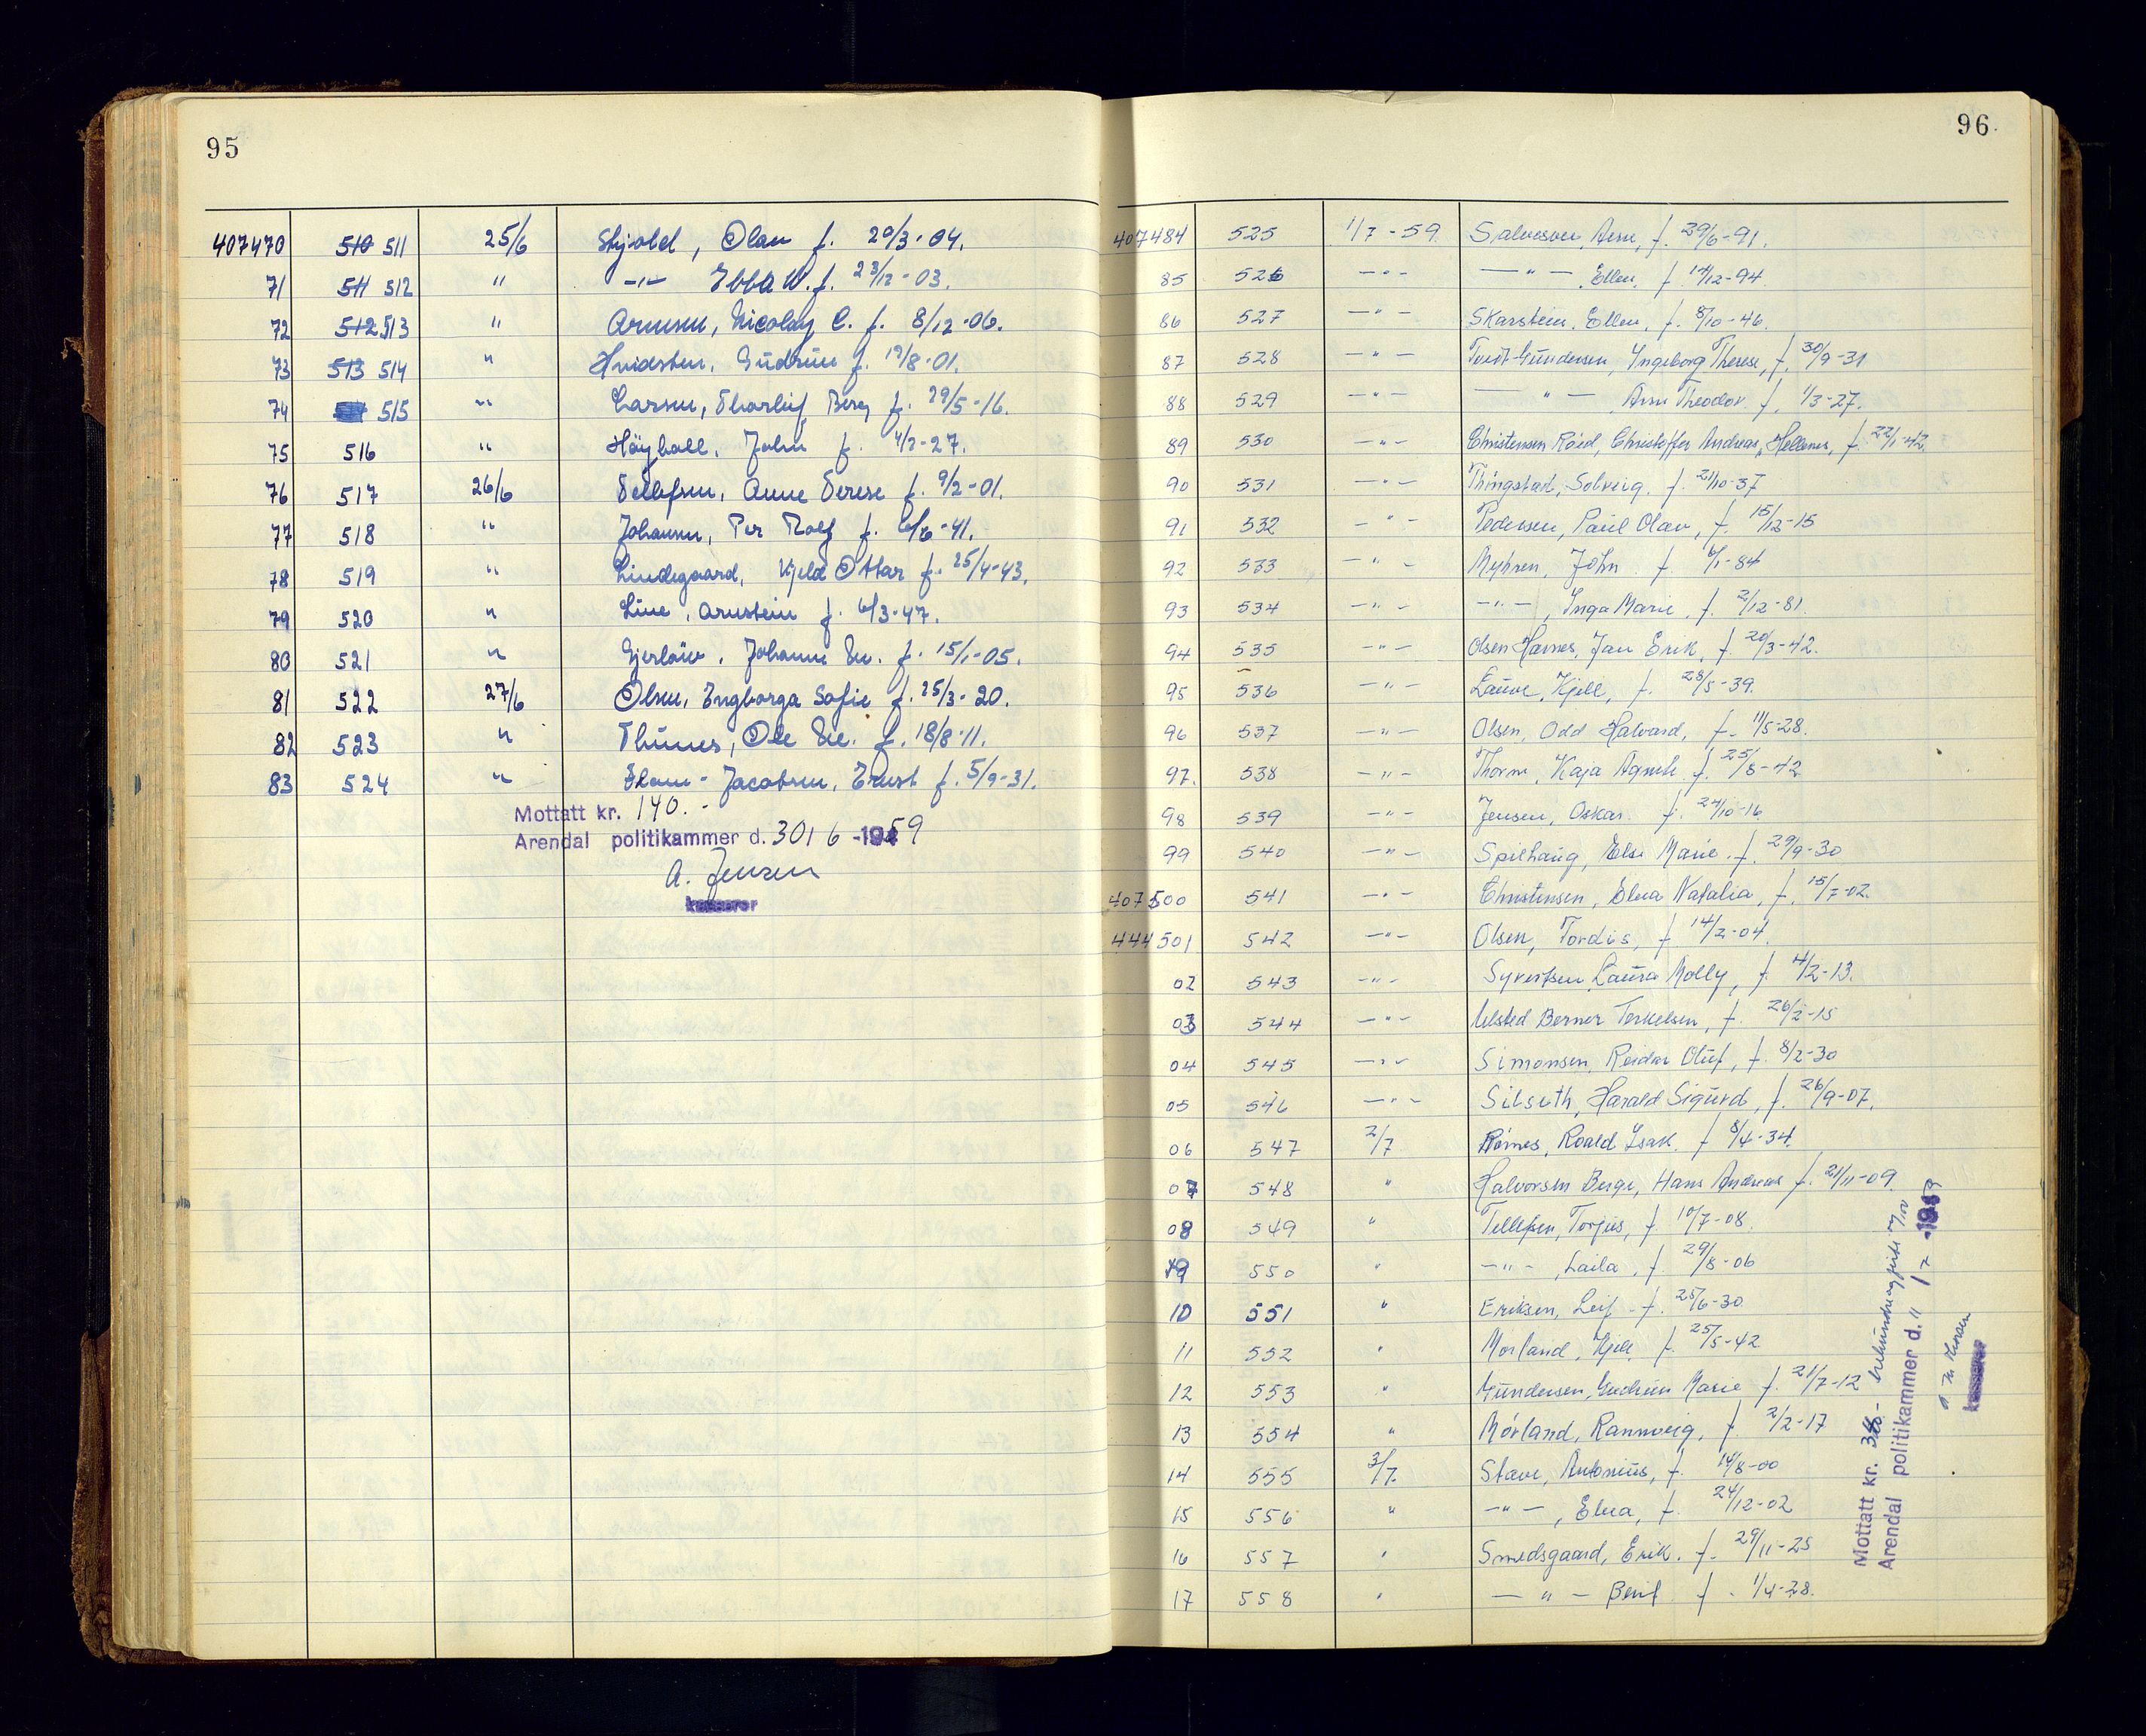 95
407470 510 511 25/6 Skjold, Olav f. 20/3-04.
71 511 512 " -"- Ebba W. f. 23/12-03.
72 512 513 " Arnesen, Nicolay C. f. 8/12-06.
73 513 514 " Hvidsten, Gudrun f. 19/8-01.
74 515 " Larsen, Thorleif Berg f. 29/5-16.
75 516 " Höyboll, John f. -27.
76 517 26/6 Tellefsen, Anne Terese f. 9/2-01.
77 518 " Johansen, Per Rolf f. -41.
78 519 " Lindegaard, Kjeld Ottar f. 25/4-43.
79 520 " Line, Arnstein f. 6/3-47.
80 521 " Gjerløw, Johanne f. 15/1-05.
81 522 27/6 Olsen, Engborga Sofie f. 25/3-20.
82 523 " Thunes, Ole f. 18/8-11.
83 524 " -Jacobsen, Ernst f. 5/9-31.
Mottatt kr. 140.-
Arendal politikammer d. 30/6-1959
A. Jensen
kasserer
96
407484 525 1/7-59 Salvesen, Arne, f. 29/6-91.
85 526 -"- -"- , Ellen, f. 14/12-94
86 527 -"- Skarstein, Ellen, f. 8/10-46.
87 528 -"- Tveit-Gundersen, Yngeborg Therese, f. 30/9-31
88 529 -"- -"- , Arne Theodor f. 1/3-27.
89 530 -"- Christensen Röed, Christoffer Andreas Hellenes, f. 22/1-42.
90 531 -"- Thingstad, Solveig. f. 21/10-37
91 532 -"- Pedersen, Paul Olav, f. 15/12-15
92 533 -"- Myhren, John f. 6/1-84
93 534 -"- -"- , Inga Marie, f. 2/12-81
94 535 -"- Olsen Havnes, Jan Erik, f. 20/3-42.
95 536 -"- Lauve, Kjell, f. 28/5-39.
96 537 -"- Olsen, Odd Halvard, f. 11/5-28.
97. 538 -"- Thorse, Kaja Agneth f. 25/8-42
98 539 -"- Jensen, Oskar. f. 24/10-16
99 540 -"- Spilhaug, Else Marie. f. 29/9-30
407500 541 -"- Christensen, Elna Natalia, f. 15/7-02.
444501 542 -"- Olsen, Tordis, f 14/2-04.
02 543 -"- Syvertsen Laura Molly, f. 4/2-13.
03 544 -"- Ulsted Berner Terkelsen, f. 26/2-15
04 545 -"- Simonsen, Reidar Oluf, f. 8/2-30
05 546 -"- Silseth, Harald Sigurd, f. 26/9-07.
06 547 2/7 Römes, Roald Isak. f 8/4-34.
07 548 " Halvorsen Berge, Hans Andreas f. 21/11-09.
08 549 " Tellefsen, Torjus, f. 10/7-08.
09 550 " -"- , Laila, f. 29/8-06
10 551 " Eriksen, Leif - f. 25/6-30
11 552 " Morland, Kjell, f. 25/5-42
12 553 " Gundersen, Gudrun Marie f. 21/7-12
13 554 " Mörland, Rannveig, f. 2/2-17
14 555 3/7. Stave, Antonius, f. 14/8-00
15 556 " -"- , Elna, f. 24/12-02
16 557 " Smedsgaard, Erik. f. 29/11-25
17 558 " -"- Berit f. 1/4-28.
Mottatt kr.
Arendal politikammer d. 11/7-1959
kasserer